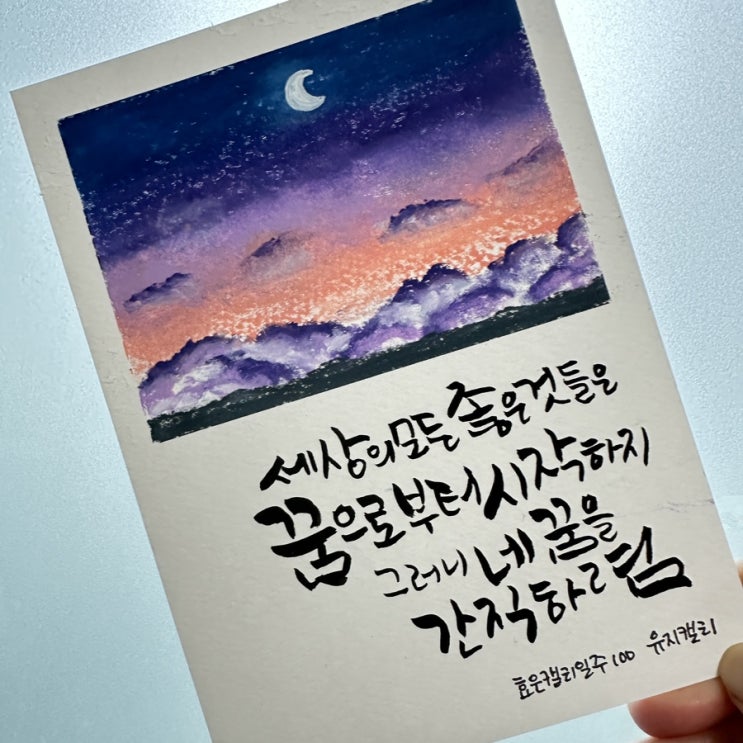 세상의 모든 좋은 것들은
꿈으로부터 시작하지
그러니 네 꿈을
간직하렴
효은캘리일주100 유지캘리